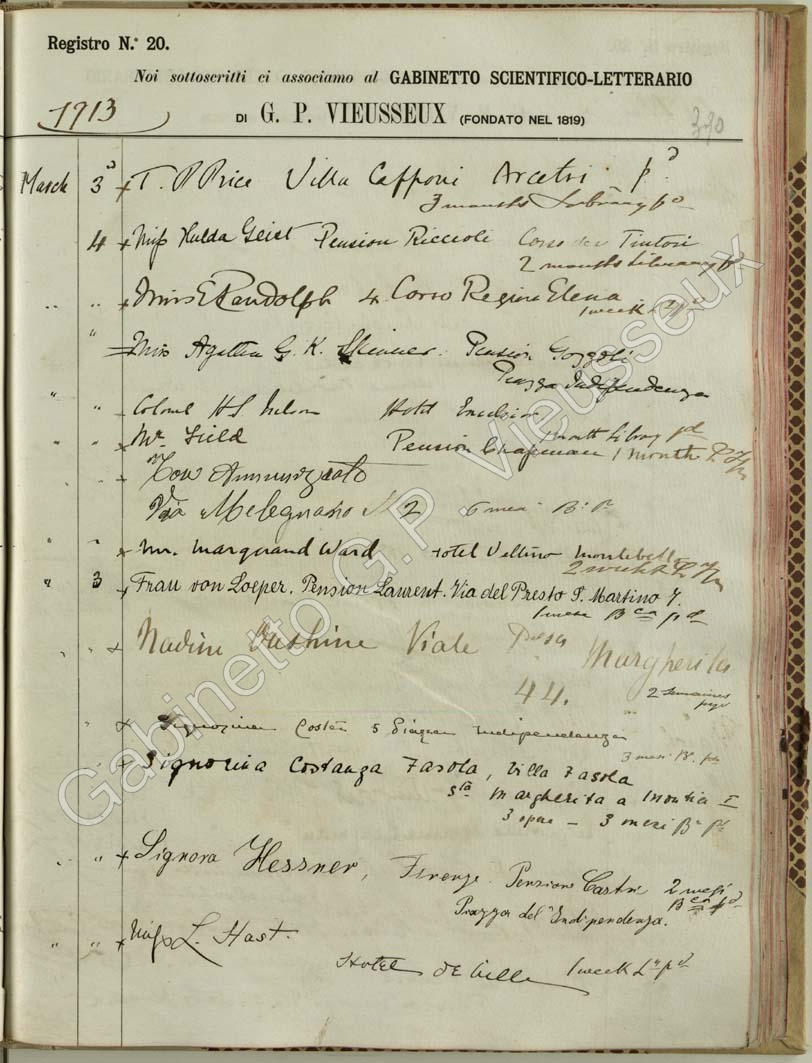 Registro N.° 20.
Noi sottoscritti ci associamo al GABINETTO SCIENTIFICO-LETTERARIO
1913
DI G. P. VIEUSSEUX (FONDATO NEL 1819)
390
March 3 T. P Price Villa Capponi Arcetri pd
3 months Library pd
4 Miss Hulda Geist Pension Riccioli Corso dei Tintori
2 months Library pd
" " Miss E Randolph 4 Corso Regina Elena
1 week L pd
" Miss Agatha G. K. Skinner. Pension Gozzoli
Piazza Indipendenza
" " Colonel H S Nelson Hotel Excelsior
1 month Library pd
" " Mr Field Pension Chapman 1 month
Via Melegnano N 2 6 mesi Ba Pd
" Mr. Marquand Ward Hotel
2 weeks
" 3 Frau von Loeper. Pension Laurent. Via del Presto S. Martino 7.
1 mese Bca pd
Nadine Viale Margherita
44. 2 semaines
" Signorina Costa 5 Piazza Indipendenza
3 mesi B. pd
" Signorina Costanza Fasola, Villa Fasola
Sta Margherita a Montici
3 opere - 3 mesi Ba Pd
" Signora Hessner, Firenze Pensione Castri 2 mesi
Bca pd
Piazza del'Endipendenza.
" " Miss L. Hast.
Hotel de Ville 1 week Ly pd
Gabinetto G.P. Vieusseux